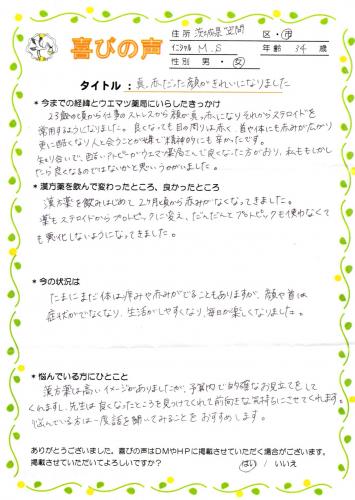 喜びの声
住所 茨城県 笠間 区・市
イニシャル M.S 年齢 34 歳
性別 男・女
タイトル：真っ赤だった顔がきれいになりました
*今までの経緯とウエマツ薬局にいらしたきっかけ
23歳の頃から仕事のストレスから顔が真っ赤になりそれからステロイドを
薬用するようになりました。良くなっても目の周りは赤く、首や体にも赤みが広がり
更に酷くなり人と会うことが嫌で精神的にも辛かったです。
知り合いで、酷いアトピーがウエマツ薬局さんで良くなった方がおり、私ももしかし
たら良くなるのではないかと思いうかがいました。
*漢方薬を飲んで変わったところ、良かったところ
漢方薬を飲みはじめて2ヶ月頃から赤みがなくなってきました。
薬もステロイドからプロトピックに変え、だんだんとプロトピックも使わなくて
も悪化しないようになってきました。
*今の状況は
たまにまだ体は痒みや赤みがでることもありますが、顔や首は
症状がでなくなり、生活がしやすくなり、毎日が楽しくなりました。
*悩んでいる方にひとこと
漢方薬は高いイメージがありましたが、予算内で的確なお見立てをして
くれますし、先生は良くなったところを見つけてくれて前向きな気持ちにさせてくれます。
悩んでいる方は一度話を聞いてみることをおすすめします。
ありがとうございました。喜びの声はDMやHPに掲載させていただく場合がございます。
掲載させていただいてよろしいですか？ はい / いいえ